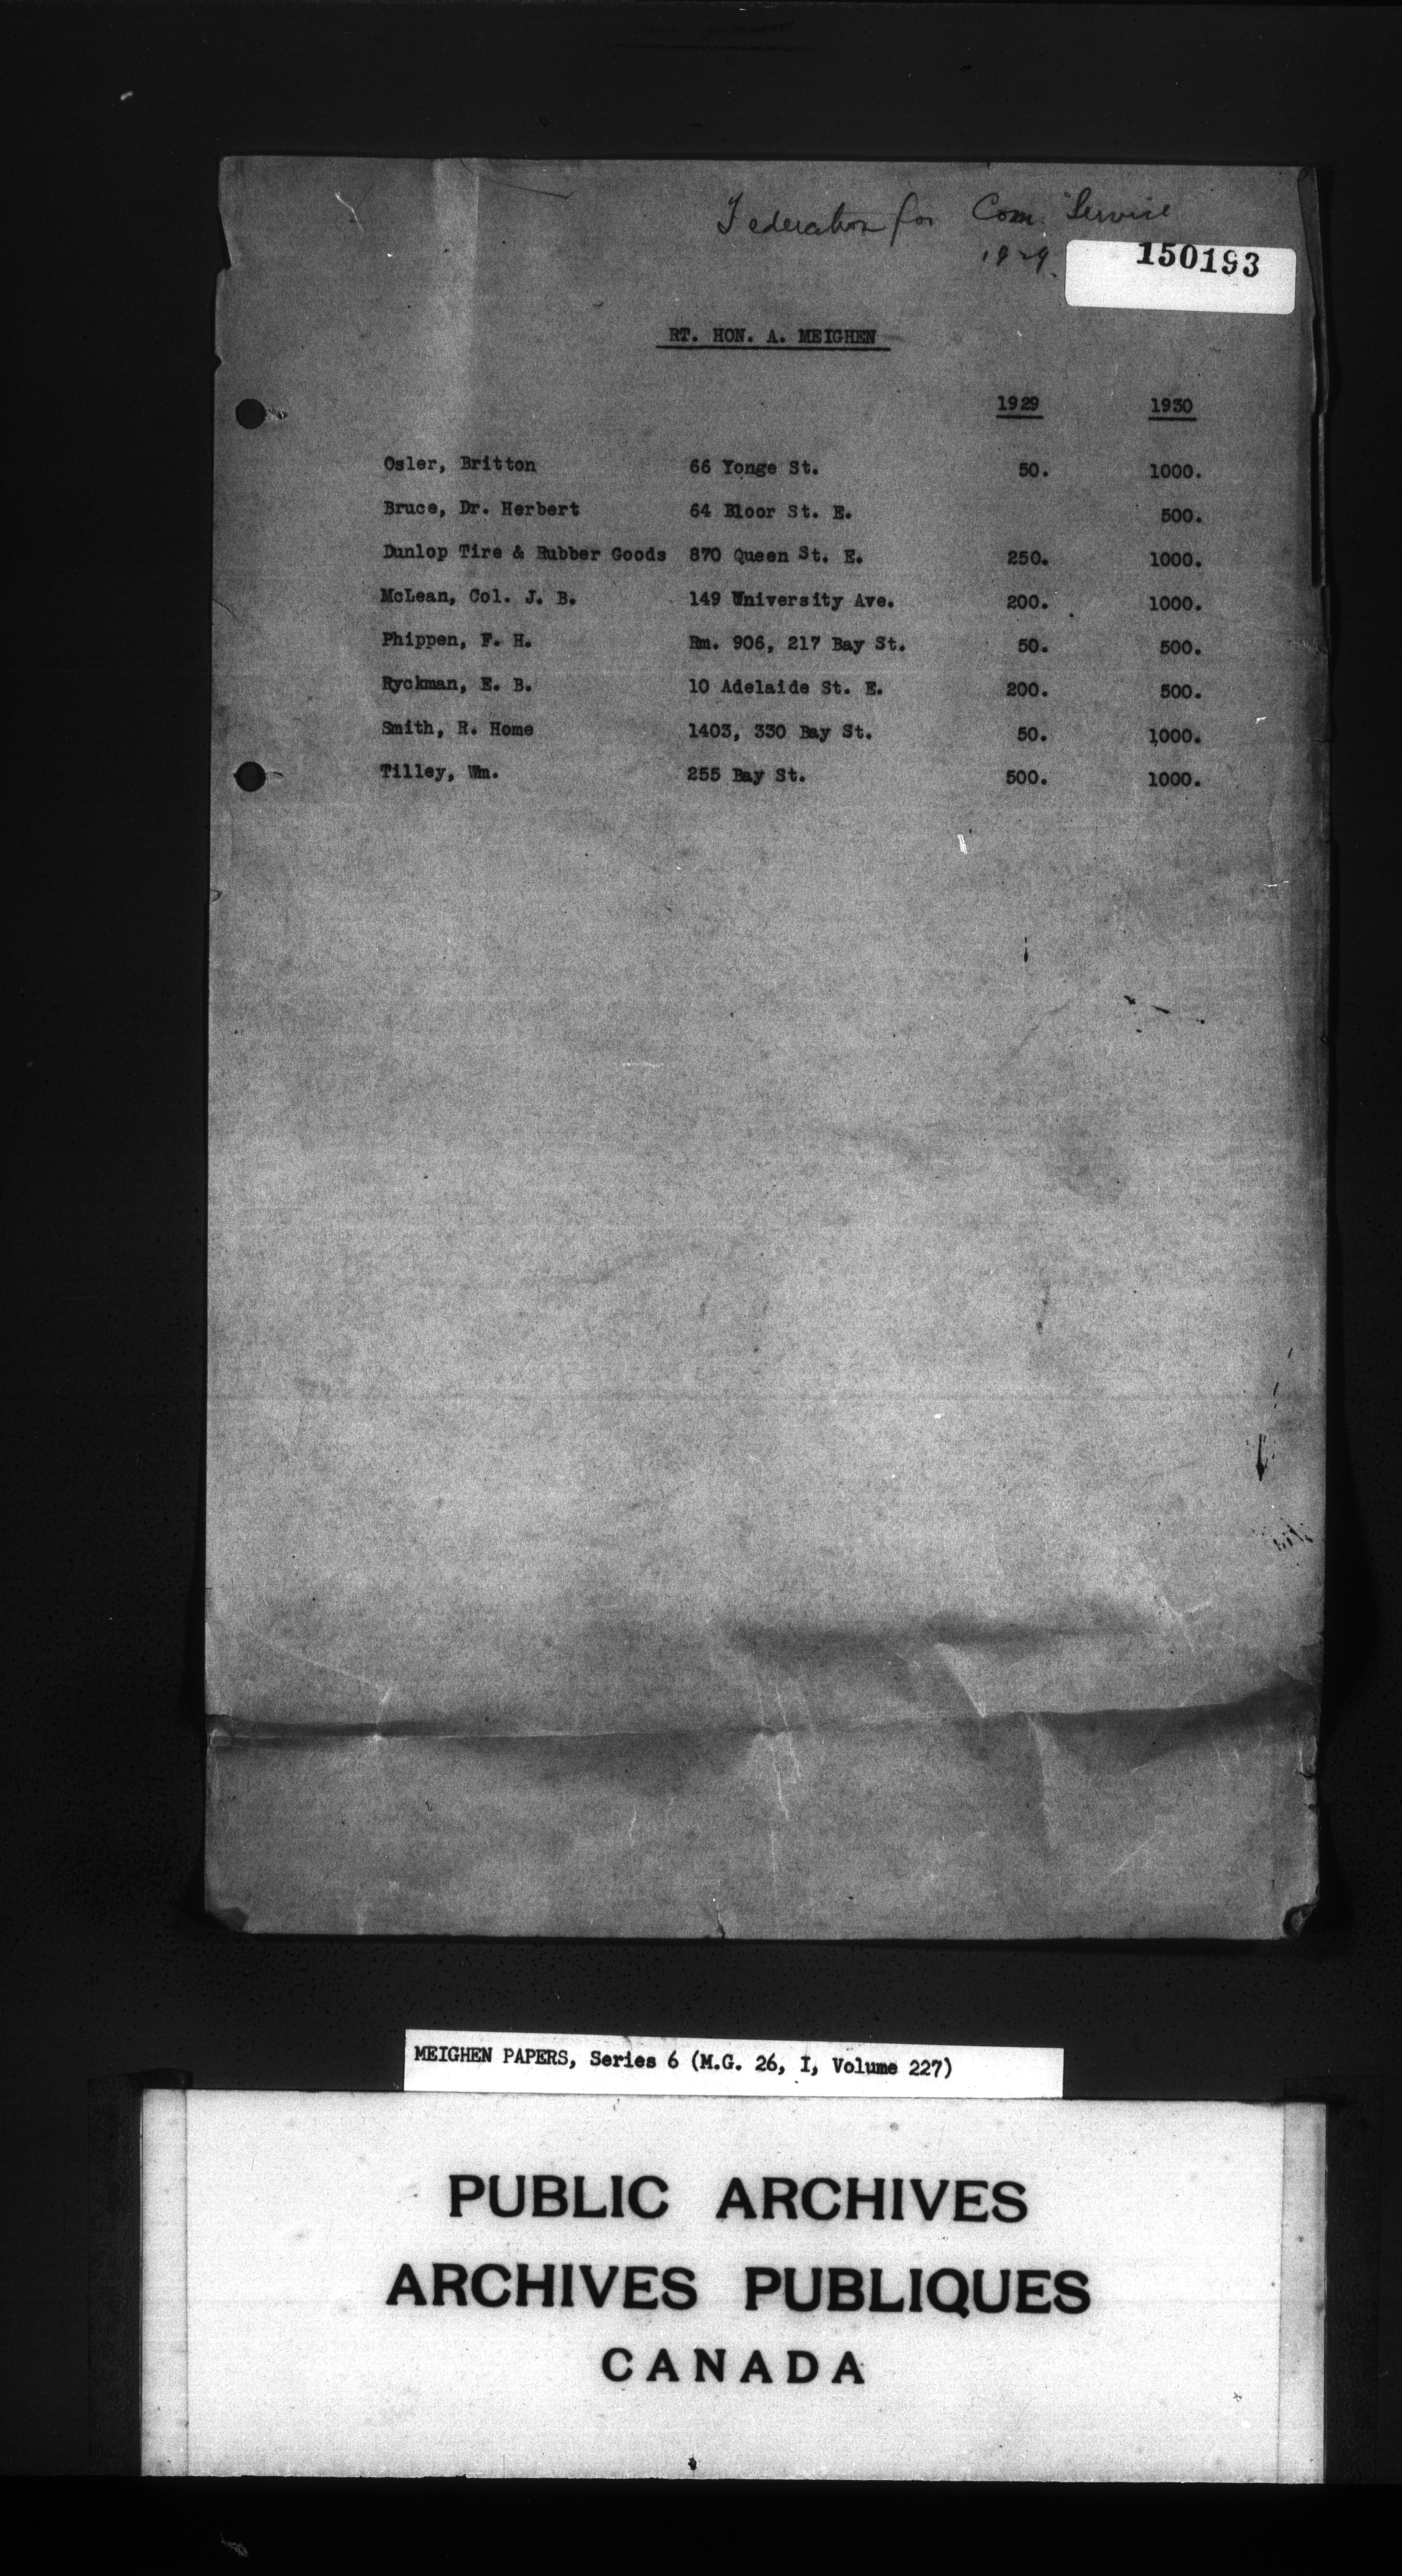 Federation for Com. Service
1929.
150193
RT. HON. A. MEIGHEN
1929 1930
Osler, Britton 66 Yonge St. 50. 1000.
Bruce, Dr. Herbert 64 Bloor St. E. 500.
Dunlop Tire & Rubber Goods 870 Queen St. E. 250. 1000.
McLean, Col. J. B. 149 University Ave. 200. 1000.
Phippen, F. H. Rm. 906, 217 Bay St. 50. 500.
Ryckman, E. B. 10 Adelaide St. E. 200. 500.
Smith, R. Home 1403, 330 Bay St. 50. 1000.
Tilley, Wm. 255 Bay St. 500. 1000.
MEIGHEN PAPERS, Series 6 (M.G. 26, I, Volume 227)
PUBLIC ARCHIVES
ARCHIVES PUBLIQUES
CANADA